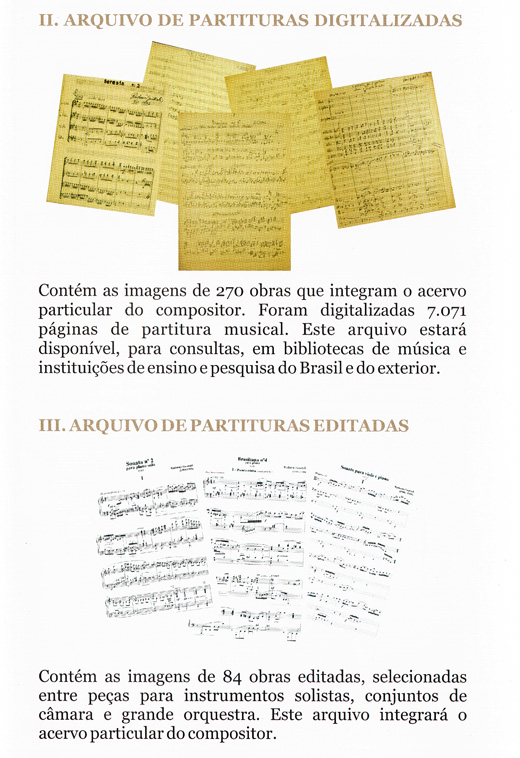 II. ARQUIVO DE PARTITURAS DIGITALIZADAS
Contém as imagens de 270 obras que integram o acervo
particular do compositor. Foram digitalizadas 7.071
páginas de partitura musical. Este arquivo estará
disponível, para consultas, em bibliotecas de música e
instituições de ensino e pesquisa do Brasil e do exterior.
III. ARQUIVO DE PARTITURAS EDITADAS
Sonata nº 2
para piano solo
Brasiliana nº4
Sonata para viola e piano
Contém as imagens de 84 obras editadas, selecionadas
entre peças para instrumentos solistas, conjuntos de
câmara e grande orquestra. Este arquivo integrará o
acervo particular do compositor.